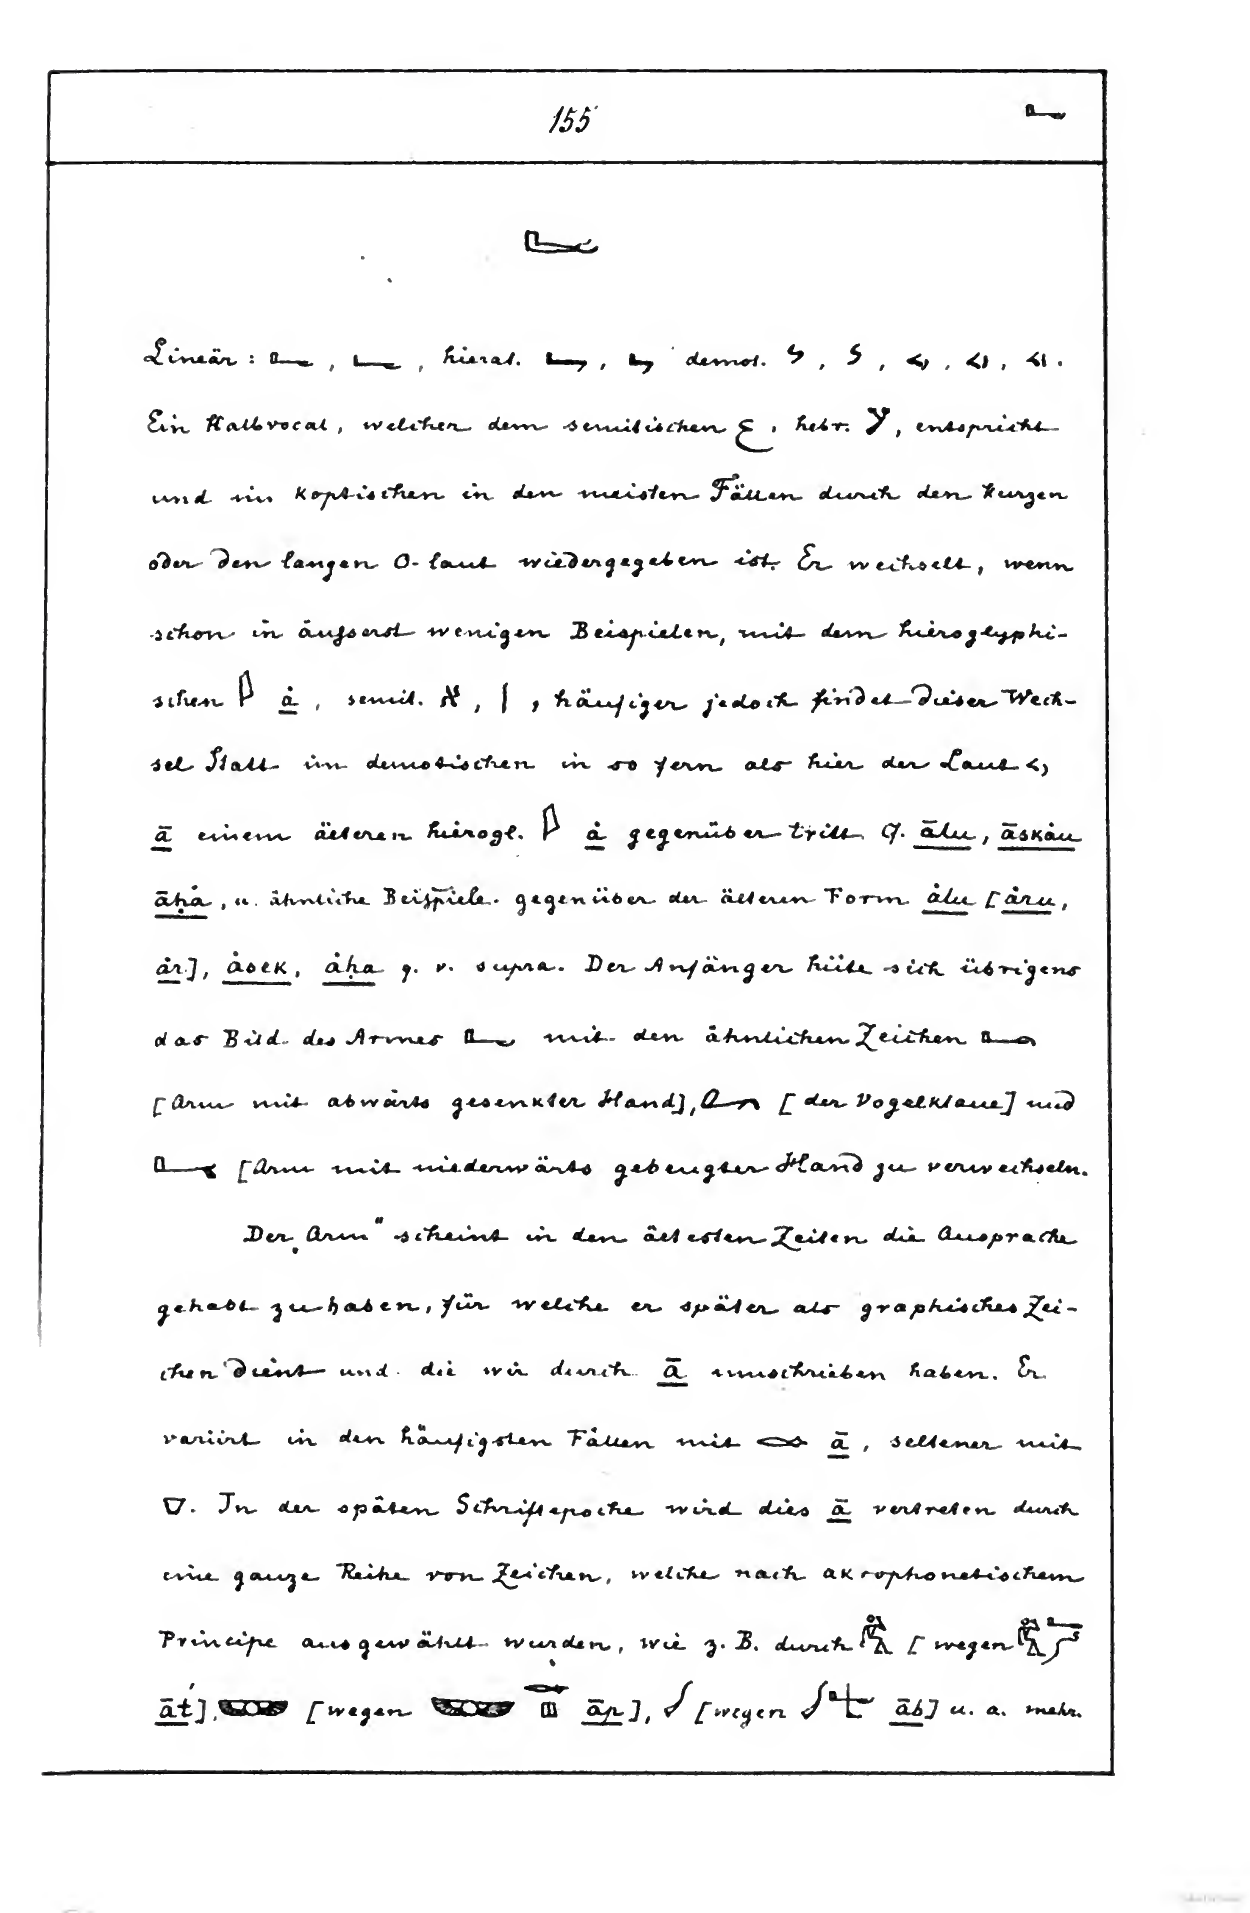 155 𓂝
𓂝
Lineär: 𓂝, 𓂝, hierat. , demot. , , , , .
Ein Halbvocal, welcher dem semitischen ع, hebr. ע, entspricht
und im koptischen in den meisten Fällen durch den kurzen
oder den langen O-laut wiedergegeben ist. Er wechselt, wenn
schon in äufserst wenigen Beispielen, mit dem hieroglyphi-
schen 𓇋 ȧ, semit. א, ا, häufiger jedoch findet dieser Wech-
sel Statt im demotischen in so fern als hier der Laut
ā einem älteren hierogl. 𓇋 ȧ gegenüber tritt. Cf. ālu, āskȧu
āḥȧ, u. ähnliche Beispiele gegenüber der älteren Form ȧlu [ȧru,
ȧr], ȧsek, ȧḥa q. v. supra. Der Anfänger hüte sich übrigens
das Bild des Armes 𓂝 mit den ähnlichen Zeichen 𓂧
[Arm mit abwärts gesenkter Hand], [der Vogelklaue] und
[Arm mit niederwärts gebeugter Hand zu verwechseln.
Der „Arm" scheint in den ältesten Zeiten die Aussprache
gehabt zu haben, für welche er später als graphisches Zei-
chen dient und die wir durch ā umschrieben haben. Er
variirt in den häufigsten Fällen mit 𓆛 ā, seltener mit
. In der späten Schriftepoche wird dies ā vertreten durch
eine ganze Reihe von Zeichen, welche nach akrophonetischem
Principe ausgewählt wurden, wie z. B. durch [wegen
āt́], [wegen āp], [wegen āb] u. a. mehr.